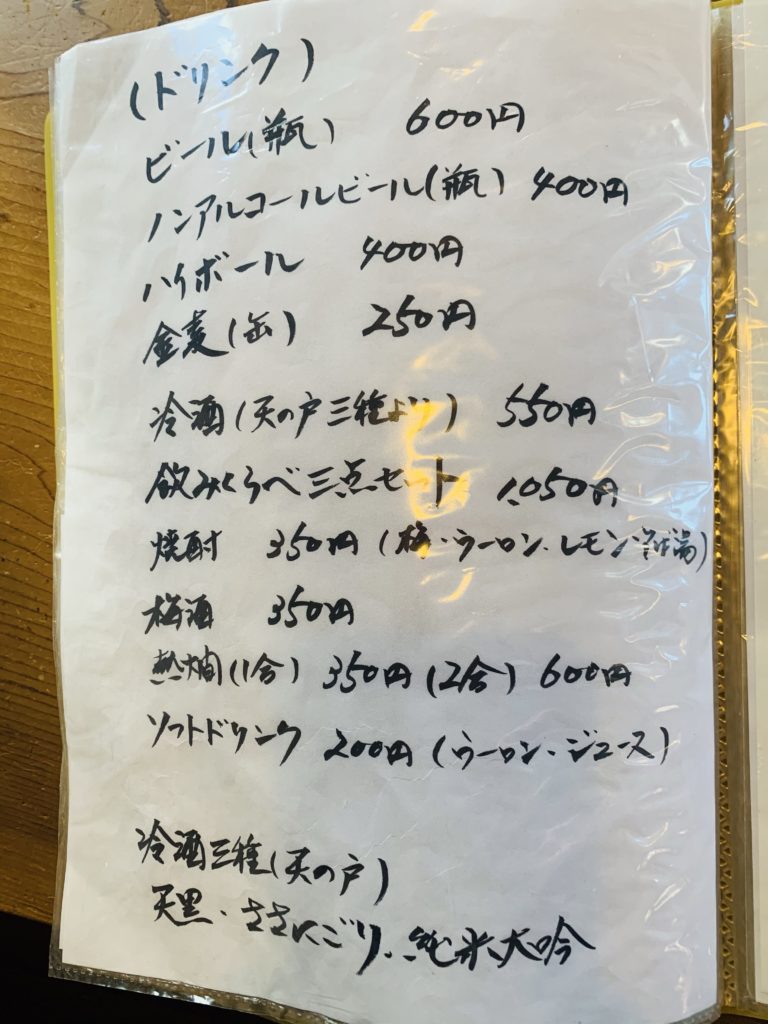 (ドリンク)
ビール(瓶) 600円
ノンアルコールビール(瓶) 400円
ハイボール 400円
金麦(缶) 250円
冷酒(天の戸三種より) 550円
飲みくらべ三点セット 1,050円
焼酎 350円(梅・ウーロン・レモン
梅酒 350円
熱燗(1合) 350円(2合) 600円
ソフトドリンク 200円(ウーロン・ジュース)
冷酒三種(天の戸)
天黒・ささにごり・純米大吟